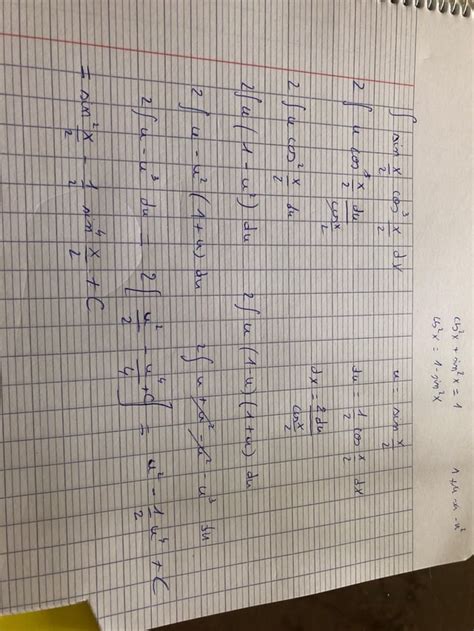 cos²x + sin²x = 1
cos²x = 1 - sin²x
1 + u - u - u²
∫ sin x/2 cos³ x/2 dx
u = sin x/2
2 ∫ u cos³ x/2 du/(cos x/2)
du = 1/2 cos x/2 dx
2 ∫ u cos² x/2 du
dx = 2 du/(cos x/2)
2 ∫ u (1 - u²) du
2 ∫ u (1 - u) (1 + u) du
2 ∫ u - u² (1 + u) du
2 ∫ u + u² - u² - u³ du
2 ∫ u - u³ du = 2 [u²/2 - u⁴/4 + C] = u² - 1/2 u⁴ + C
= sin² x/2 - 1/2 sin⁴ x/2 + C